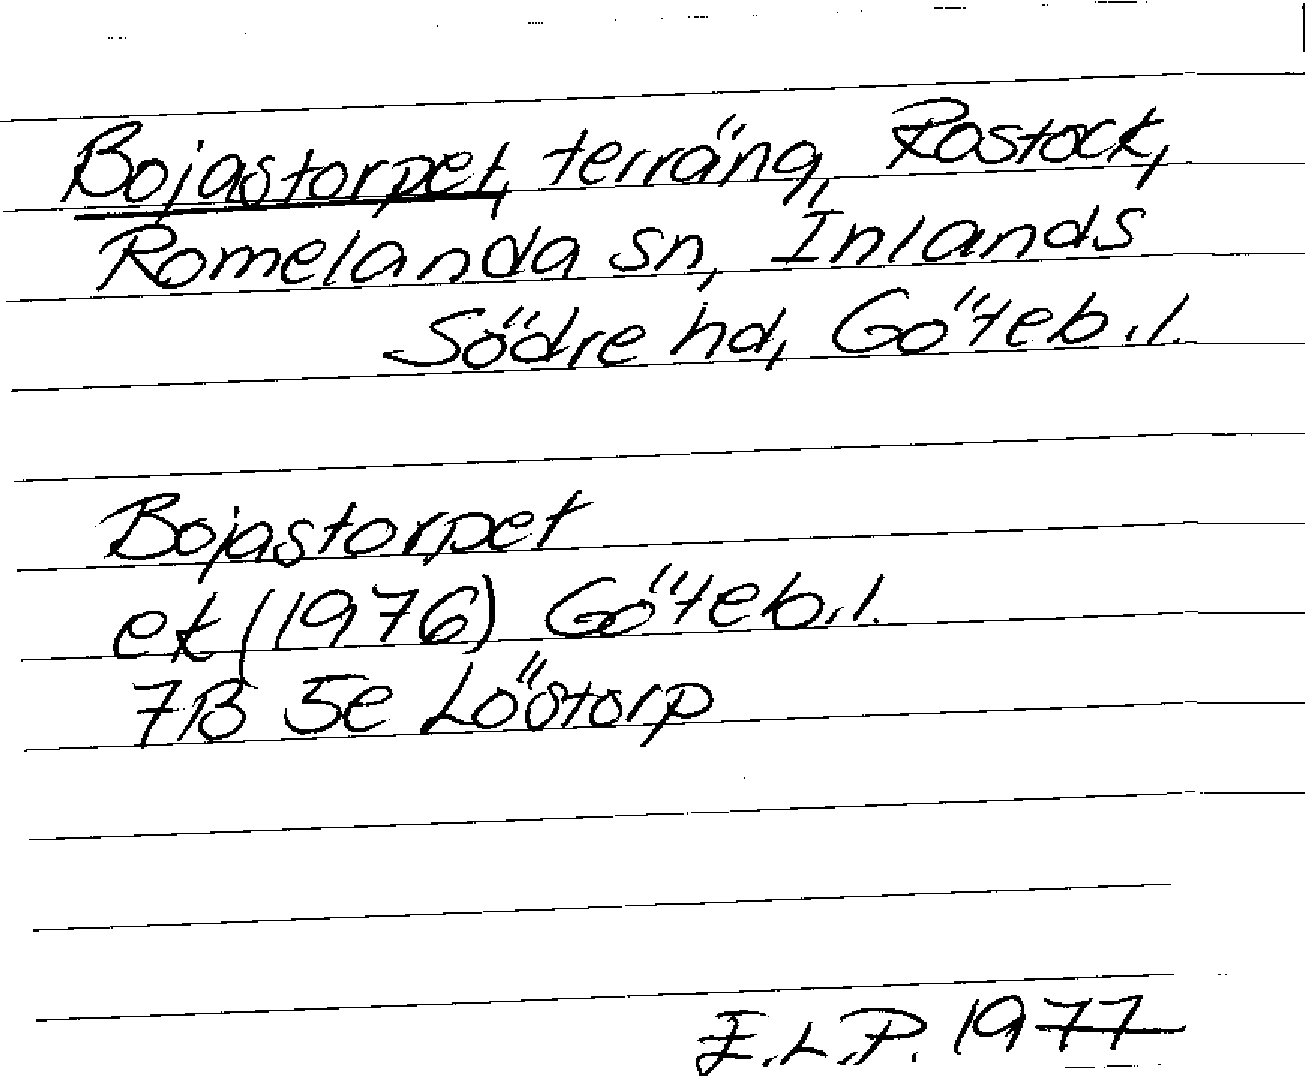 Bojastorpet, terräng, Rostock,
Romelanda sn, Inlands
Södre hd, Göteb.l.
Bojastorpet
ek (1976) Göteb.l.
7B 5e Löstorp
E.L.P. 1977